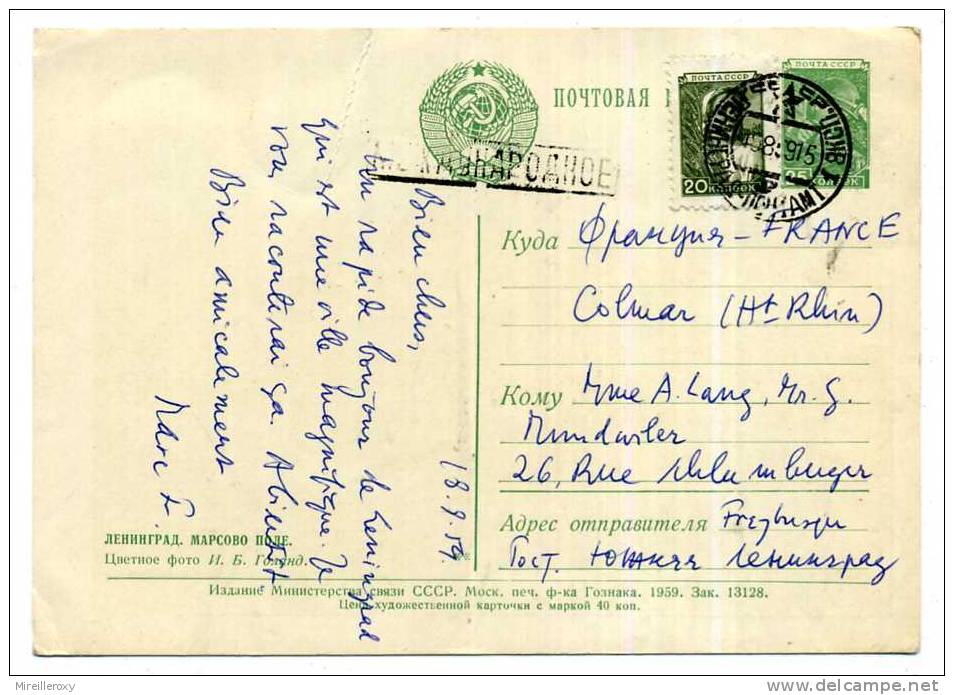 ПОЧТОВАЯ
ПОЧТА СССР
20 КОПЕЕК
ПОЧТА СССР
25 КОПЕЕК
МЕЖДУНАРОДНОЕ
18.9.59
Bien chers,
Un rapide bonjour de Leningrad
qui est une ville magnifique. Je
vous raconterai ça. A bientôt
Bien amicalement
Marc F.
Куда Франция - FRANCE
Colmar (Ht Rhin)
Кому Mme A. Lang, Mr. G.
26, Rue
Адрес отправителя
Гост. Южная Ленинград
ЛЕНИНГРАД. МАРСОВО ПОЛЕ.
Цветное фото И. Б. Голанд.
Издание Министерства связи СССР. Моск. печ. ф-ка Гознака. 1959. Зак. 13128.
Цена художественной карточки с маркой 40 коп.
Mireilleroxy
delcampe.net